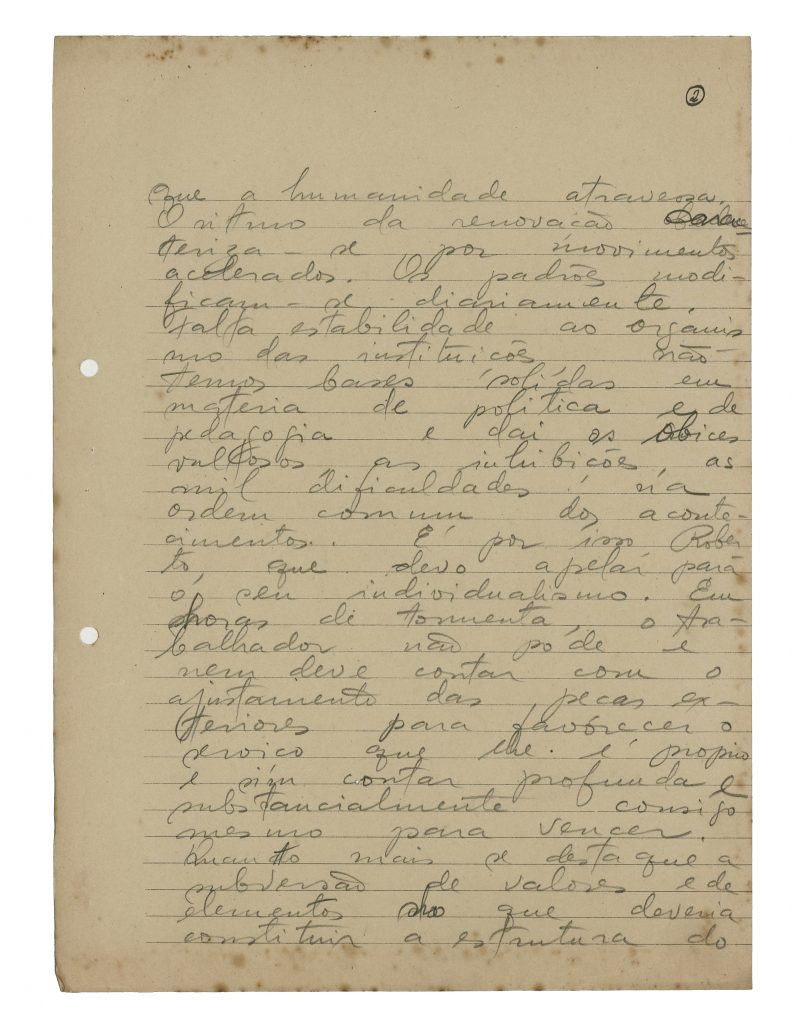 2
que a humanidade atravessa.
O ritmo da renovação carac-
teriza-se por movimentos
acelerados. Os padrões modi-
ficam-se diariamente,
Falta estabilidade ao organis
mo das instituições não
temos bases sólidas em
materia de politica e de
pedagogia e dai os óbices
vultosos, as inhibições, as
mil dificuldades na
ordem comum dos aconte-
cimentos. É por isso Rober
to, que devo apelar para
o seu individualismo. Em
horas de tormenta, o tra-
balhador não póde e
nem deve contar com o
ajustamento das peças ex-
teriores para favorecer o
serviço que lhe é proprio
e sim contar profunda e
substancialmente consigo
mesmo para vencer.
Quanto mais se destaque a
subversão de valores e de
elementos no que deveria
constituir a estrutura do